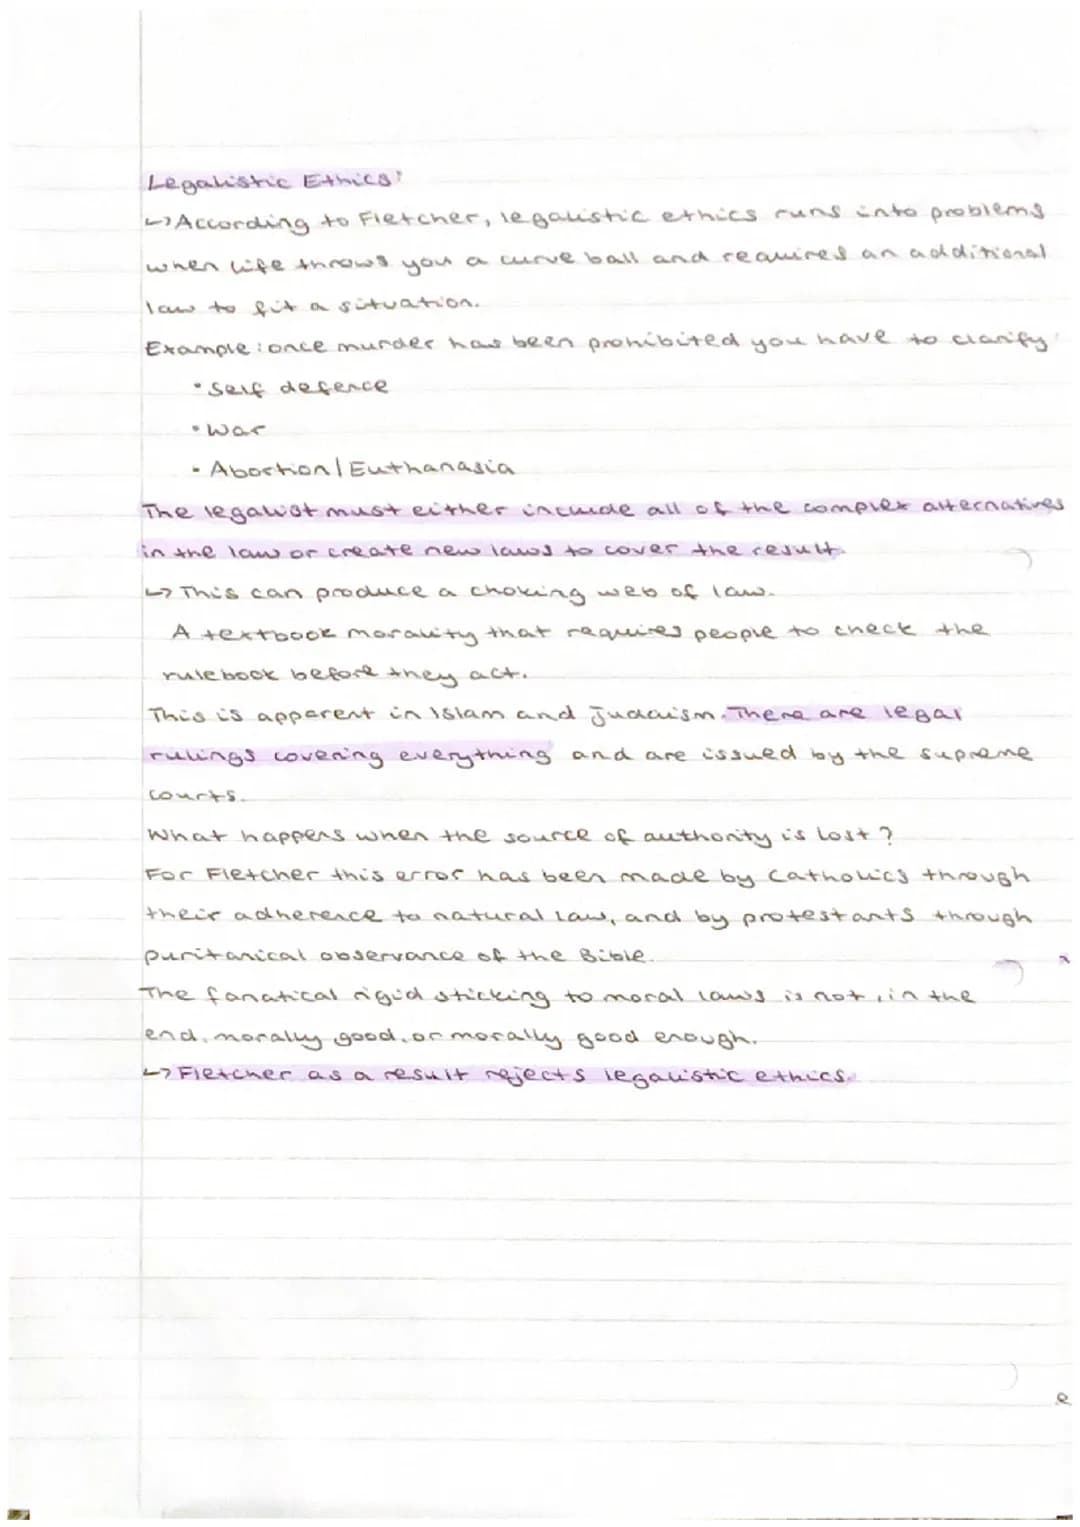 Legalistic Ethics:
↳ According to Fletcher, legalistic ethics runs into problems
when life throws you a curve ball and requires an additional
law to fit a situation.
Example: once murder has been prohibited you have to clarify:
• Self defence
• War
• Abortion/Euthanasia
The legalist must either include all of the complex alternatives
in the law or create new laws to cover the result.
↳ This can produce a choking web of law.
A textbook morality that requires people to check the
rulebook before they act.
This is apparent in Islam and Judaism. There are legal
rulings covering everything and are issued by the supreme
courts.
What happens when the source of authority is lost?
For Fletcher this error has been made by Catholics through
their adherence to natural law, and by protestants through
puritanical observance of the Bible.
The fanatical rigid sticking to moral laws is not, in the
end, morally good, or morally good enough.
↳ Fletcher as a result rejects legalistic ethics.